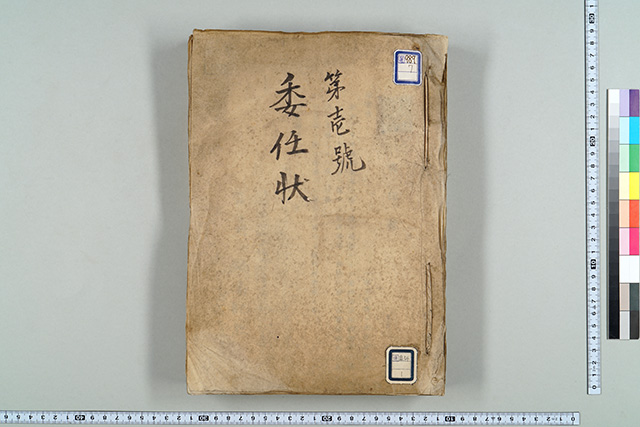 第壱號
委任状